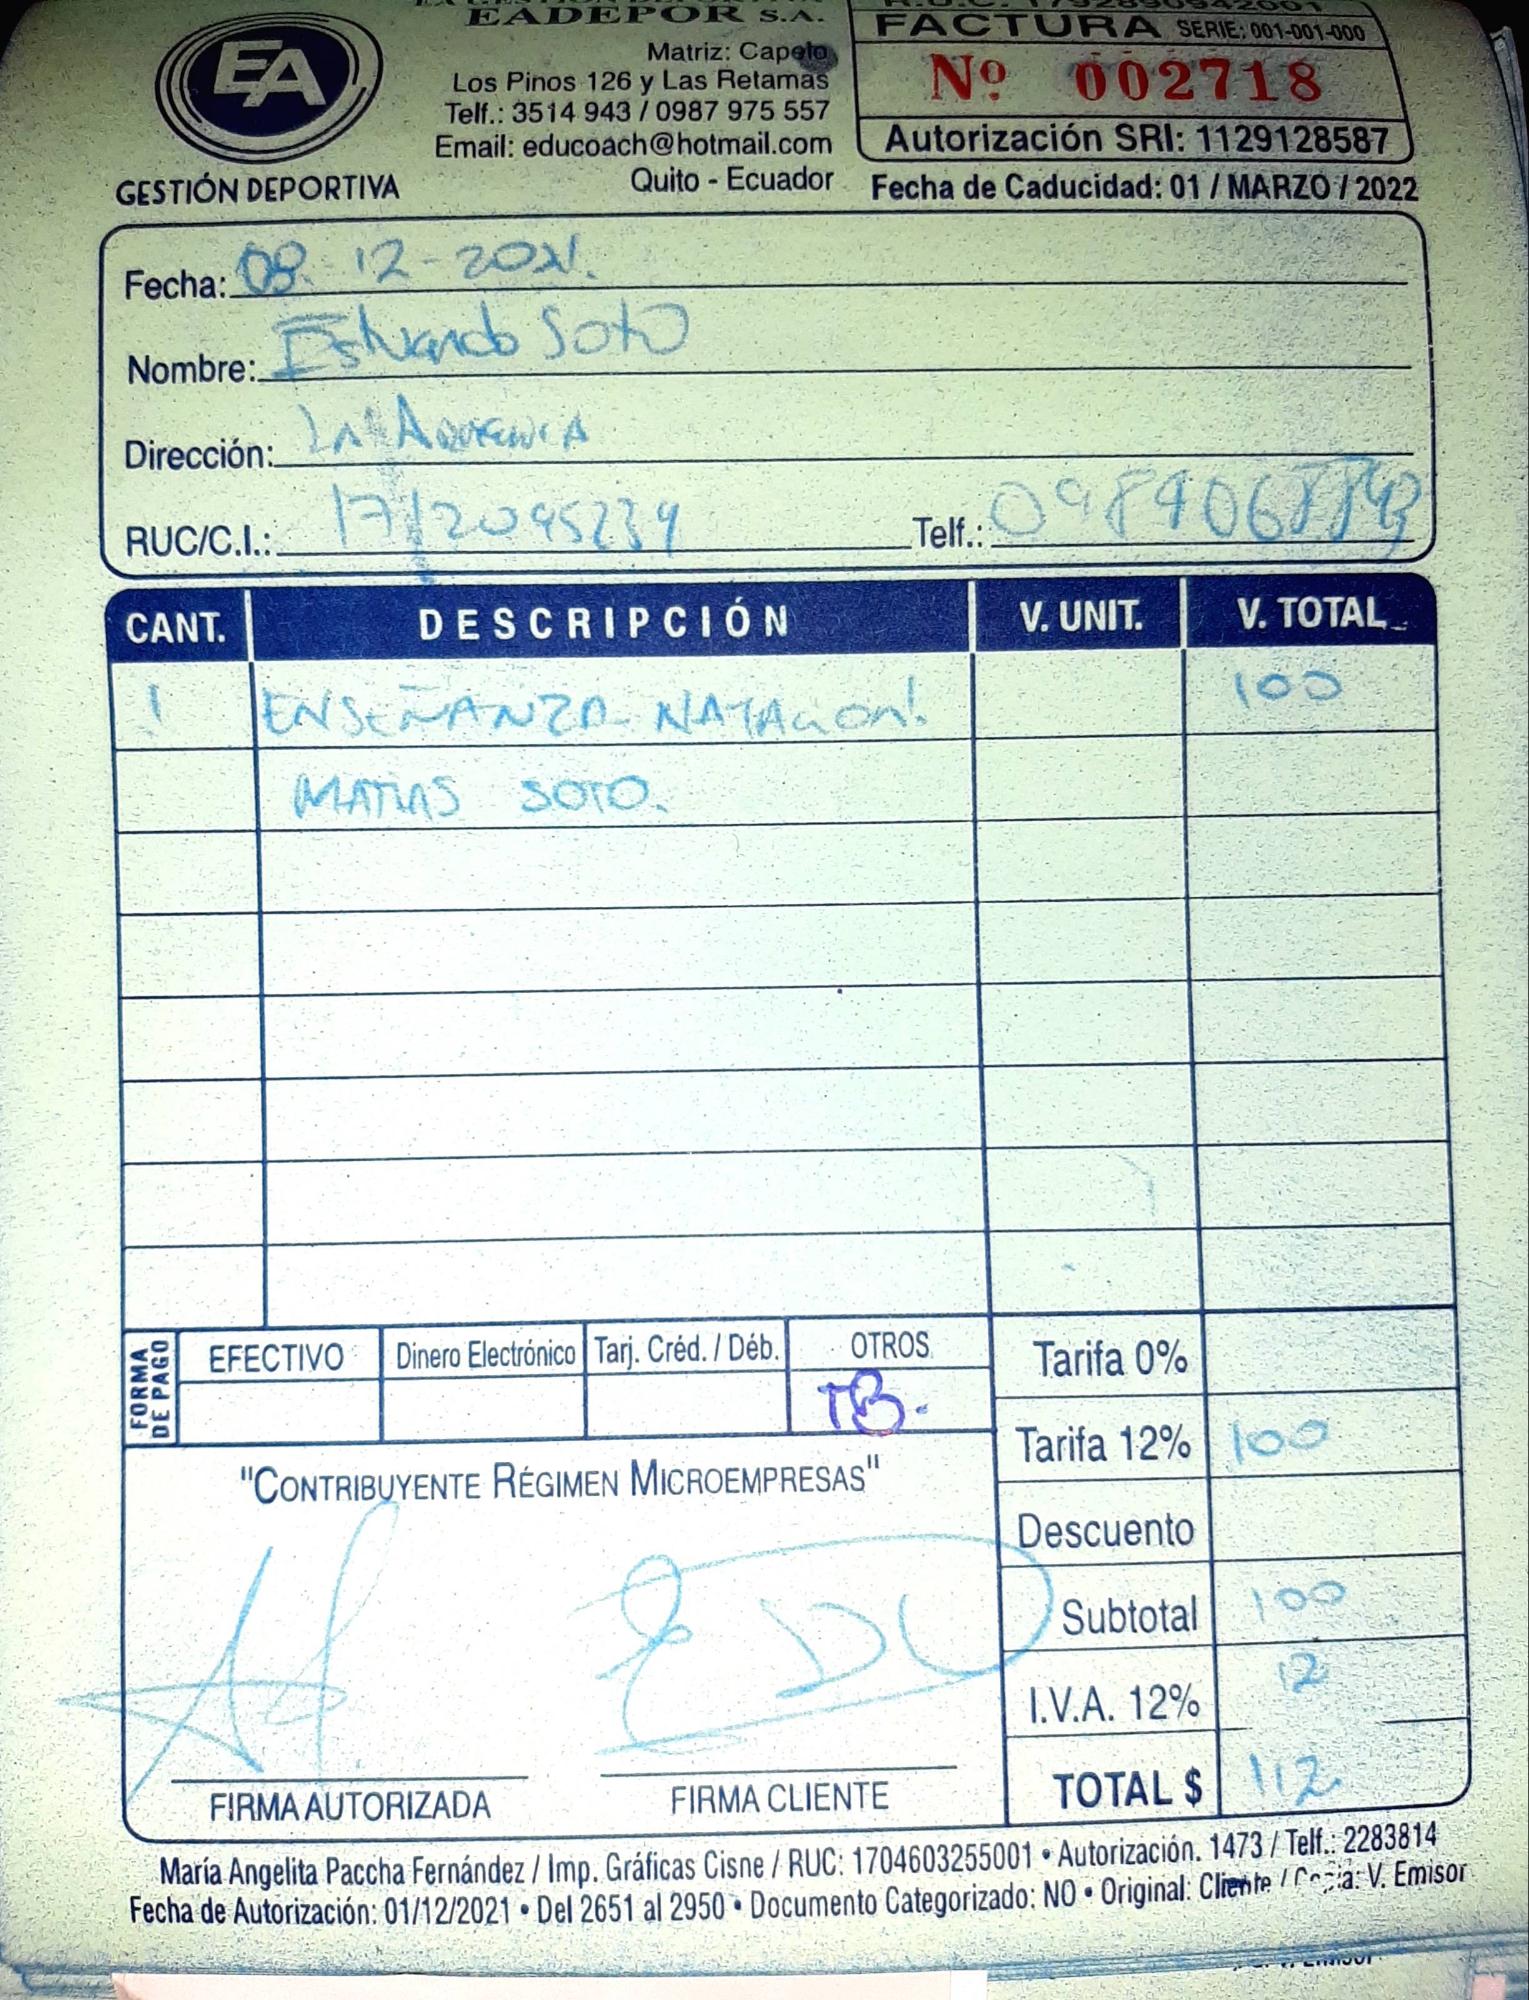 EADEPOR S.A.
EA
GESTIÓN DEPORTIVA
Matriz: Capelo
Los Pinos 126 y Las Retamas
Telf.: 3514 943 / 0987 975 557
Email: educoach@hotmail.com
Quito - Ecuador
R.U.C. 1792890942001
FACTURA SERIE: 001-001-000
Nº 002718
Autorización SRI: 1129128587
Fecha de Caducidad: 01 / MARZO / 2022
Fecha: 08-12-2021.
Nombre: Soto
Dirección: LA
RUC/C.I.: Telf.:
CANT. DESCRIPCIÓN V. UNIT. V. TOTAL
1 ENSEÑANZA NATACIÓN! 100
MATIAS SOTO.
FORMA DE PAGO
EFECTIVO Dinero Electrónico Tarj. Créd. / Déb. OTROS
TB.
Tarifa 0%
Tarifa 12% 100
Descuento
Subtotal 100
I.V.A. 12% 12
TOTAL $ 112
"CONTRIBUYENTE RÉGIMEN MICROEMPRESAS"
FIRMA AUTORIZADA FIRMA CLIENTE
María Angelita Paccha Fernández / Imp. Gráficas Cisne / RUC: 1704603255001 • Autorización. 1473 / Telf.: 2283814
Fecha de Autorización: 01/12/2021 • Del 2651 al 2950 • Documento Categorizado: NO • Original: Cliente / Copia: V. Emisor